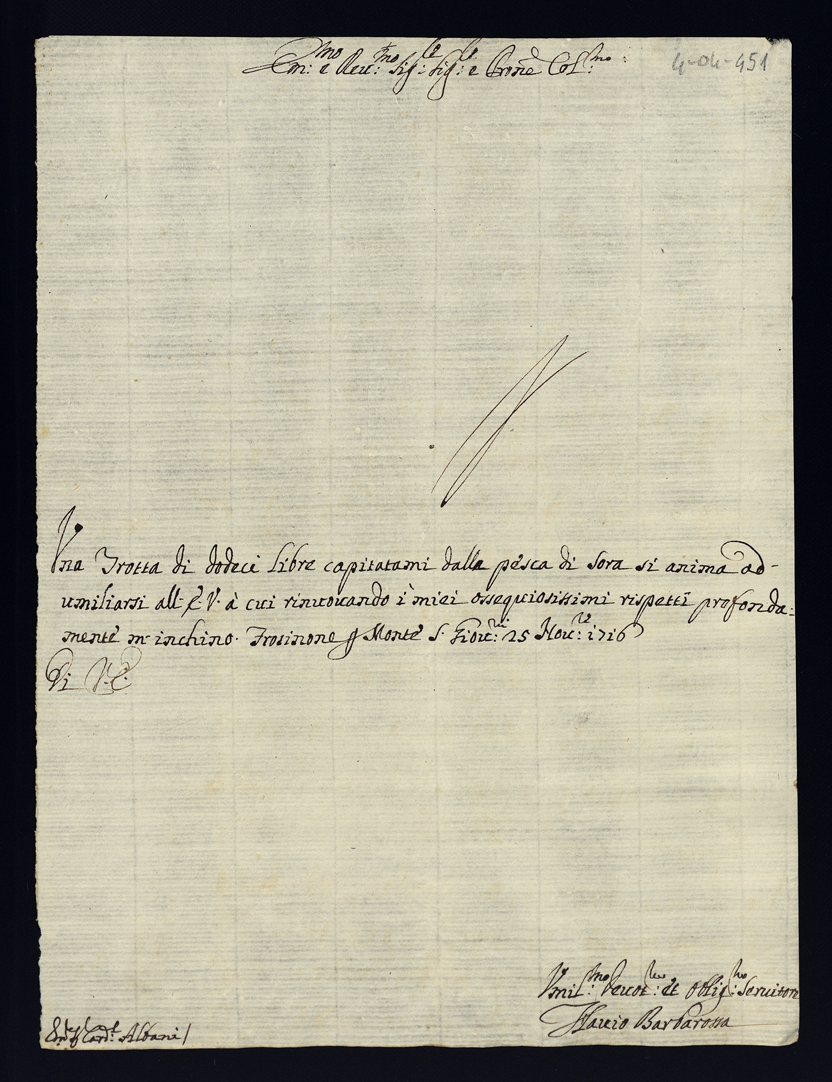 Em:mo e Reu:mo Sig:re Sig:re e Prone Col:mo
4-04-451
Vna Trotta di dodeci libre capitatami dalla pesca di Sora si anima ad-
umiliarsi all' E V. à cui rinuouando i miei ossequiosissimi rispetti profonda-
mente m' inchino. Frosinone p Monte S. Gioi:ni 25 Nou:re 1716
Di V. E.
Vmil:mo Deuot:mo et Oblig:mo Seruitore
Flauio Barbarossa
Card: Albani